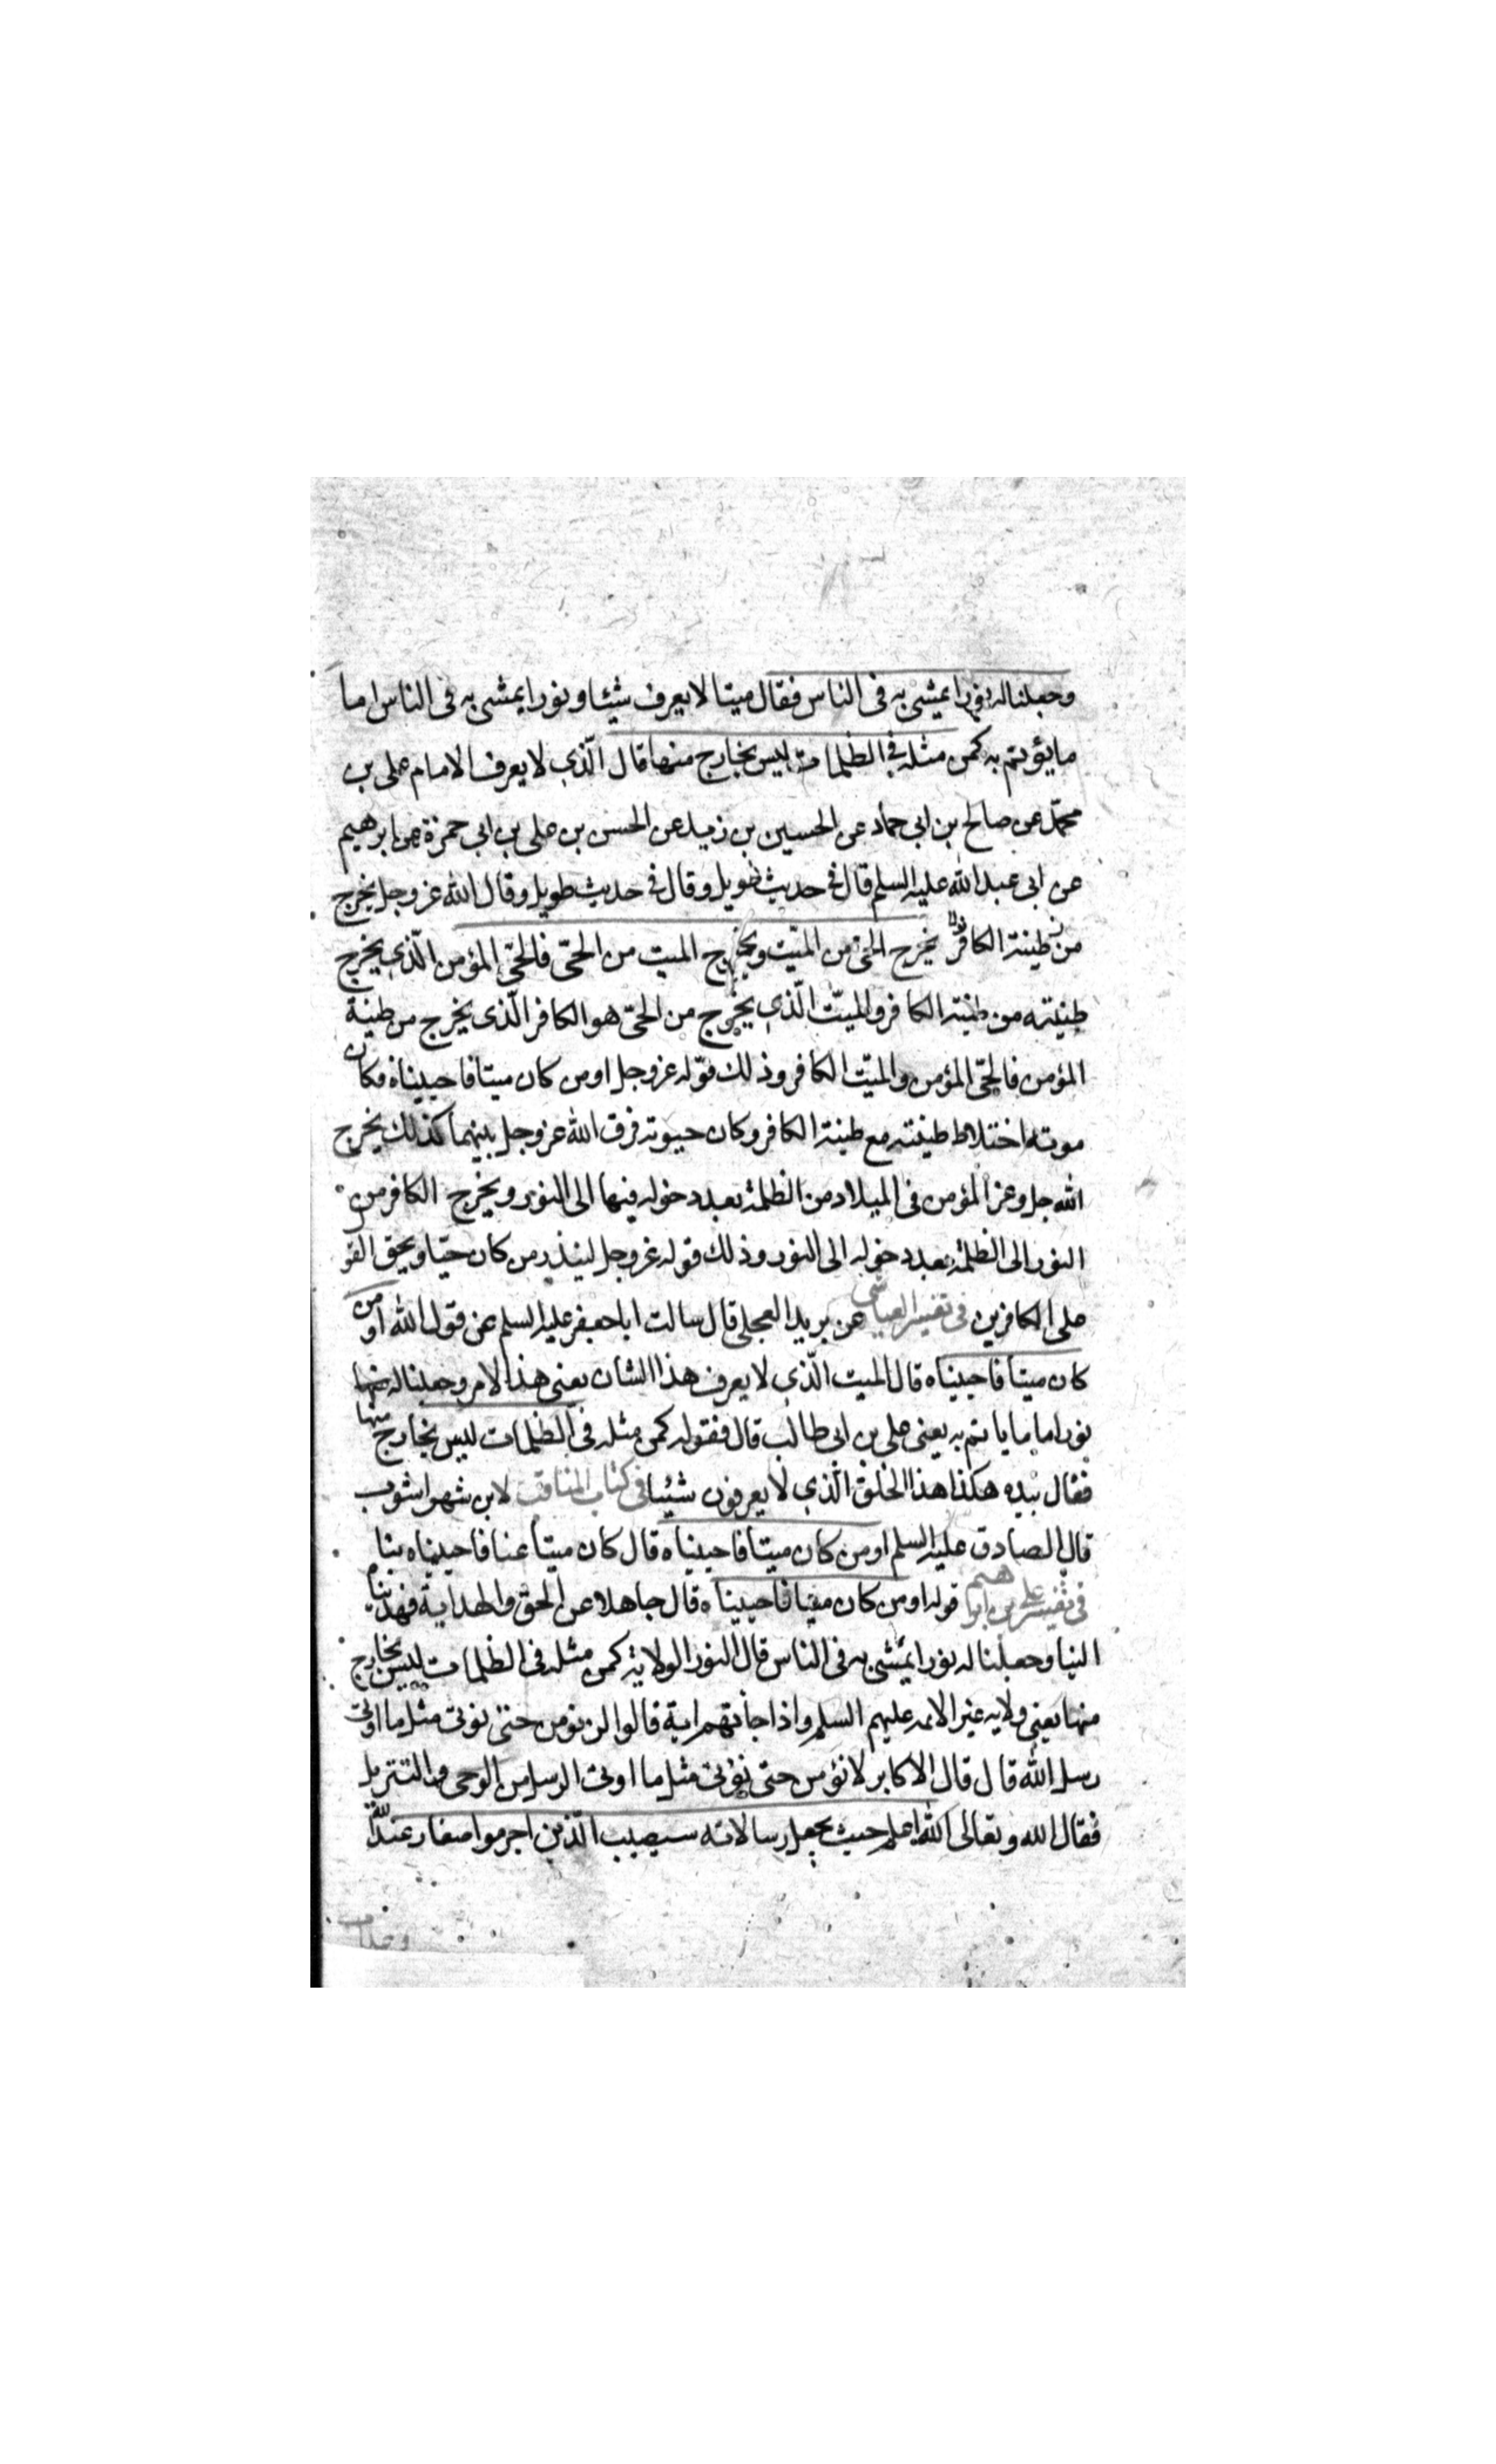 وجعلنا له نورا يمشى به فى الناس فقال ميتا لا يعرف شيئا و نورا يمشى به فى الناس اما
ما يؤتم به كمن مثله فى الظلمات ليس بخارج منها قال الّذى لا يعرف الامام على بن
محمّد عن صالح بن ابى حماد عن الحسين بن زيد عن الحسن بن على بن ابى حمزة عن ابرهيم
عن ابى عبد الله عليه السلم قال فى حديث طويل و قال فى حديث طويل و قال الله عز وجل يخرج
من طينة الكافر يخرج الحىّ من الميّت ويخرج الميت من الحىّ فالحىّ المؤمن الّذى يخرج
طينته من طينة الكافر والميّت الّذى يخرج من الحىّ هو الكافر الّذى يخرج من طينة
المؤمن فالحىّ المؤمن والميّت الكافر وذلك قوله عز وجل اومن كان ميتا فاحييناه فكان
موته اختلاط طينته مع طينة الكافر وكان حيوته فرق الله عز وجل بينهما كذلك يخرج
الله جل وعز المؤمن فى الميلاد من الظلمة بعد دخوله فيها الى النور ويخرج الكافر من
النور الى الظلمة بعد دخوله الى النور وذلك قوله عز وجل لينذر من كان حيّا ويحق القو
على الكافرين فى تفسير العياشى عن بريد العجلى قال سالت ابا جعفر عليه السلم عن قول الله اومن
كان ميتا فاحييناه قال الميت الّذى لا يعرف هذا الشان يعنى هذا الامر وجعلنا له
نورا اما ما ياتم به يعنى على بن ابى طالب قال فقوله كمن مثله فى الظلمات ليس بخارج منها
فقال بيده هكذا هذا الخلق الّذى لا يعرفون شيئا فى كتاب المناقب لابن شهر اشوب
قال الصادق عليه السلم اومن كان ميتا فاحييناه قال كان ميتا عنا فاحييناه بنا
فى تفسير على بن ابرهيم قوله اومن كان ميتا فاحييناه قال جاهلا عن الحق والهداية فهديناه
الينا وجعلنا له نورا يمشى به فى الناس قال النور الولاية كمن مثله فى الظلمات ليس بخارج
منها يعنى ولايه غير الائمه عليهم السلم واذا جائتهم اية قالوا لن نومن حتى نوتى مثل ما اوتى
رسل الله قال قال الاكابر لا نؤمن حتى نؤتى مثل ما اوتى الرسل من الوحى والتنزيل
فقال الله و تعالى الله اعلم حيث يجعل رسالاته سيصيب الّذين اجرموا صغار عند الله